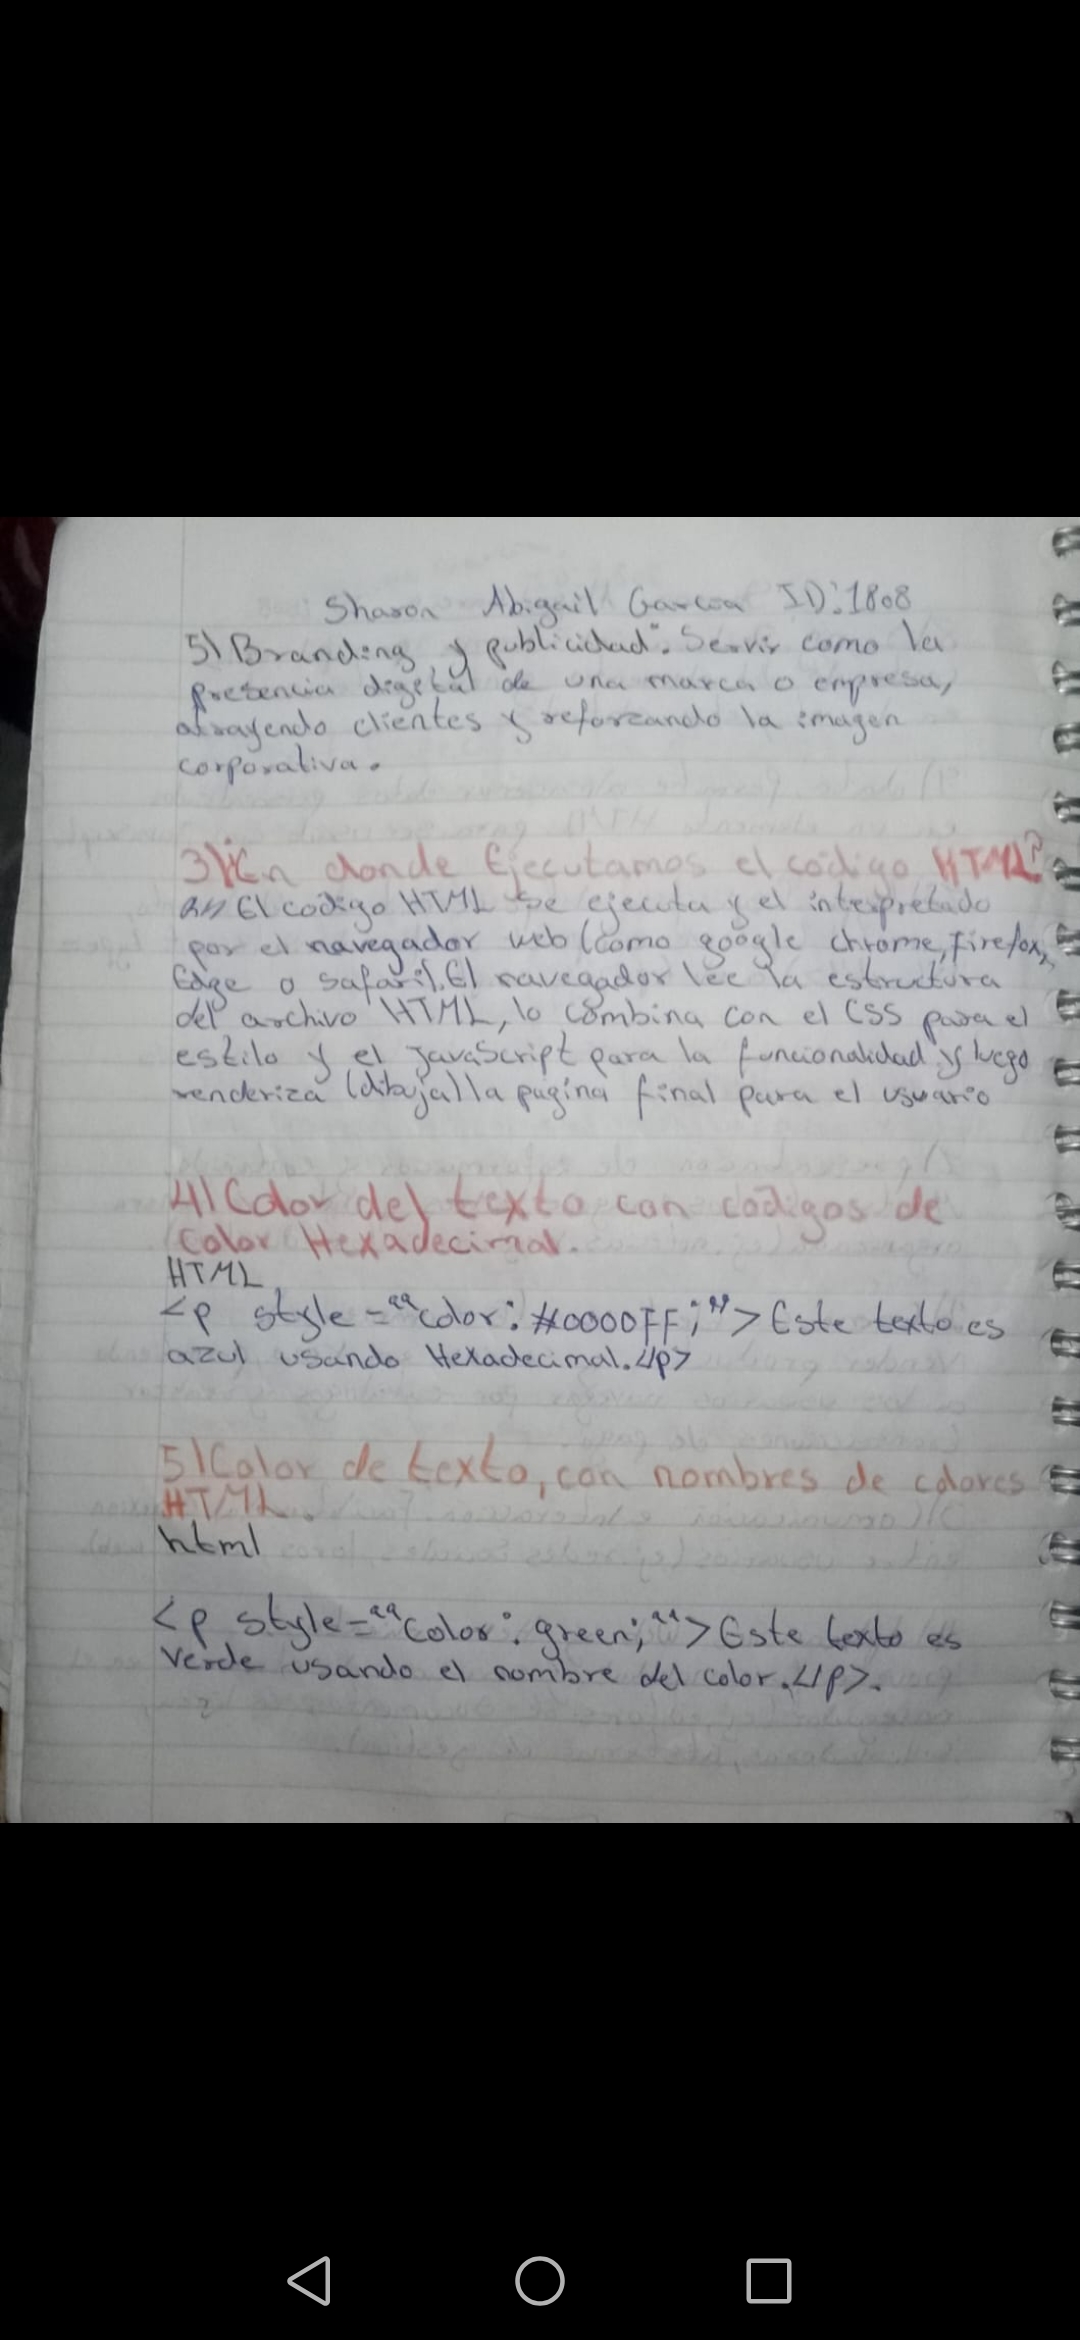 Sharon Abigail Garcia ID:1808
5) Branding y publicidad: Servir como la
presencia digital de una marca o empresa,
atrayendo clientes y reforzando la imagen
corporativa.
3) ¿En donde Ejecutamos el código HTML?
R// El codigo HTML se ejecuta y el interpretado
por el navegador web (como google chrome, Firefox,
Edge o safari). El navegador lee la estructura
del archivo HTML, lo combina con el CSS para el
estilo y el JavaScript para la funcionalidad y luego
renderiza (dibuja) la pagina final para el usuario
4) Color del texto con codigos de
Color Hexadecimal.
HTML
<p style =""color: #0000FF;""> Este texto es
azul usando Hexadecimal.</p>
5) Color de texto, con nombres de colores
HTML.
html
<p style=""color: green;""> Este texto es
Verde usando el nombre del color.</p>.